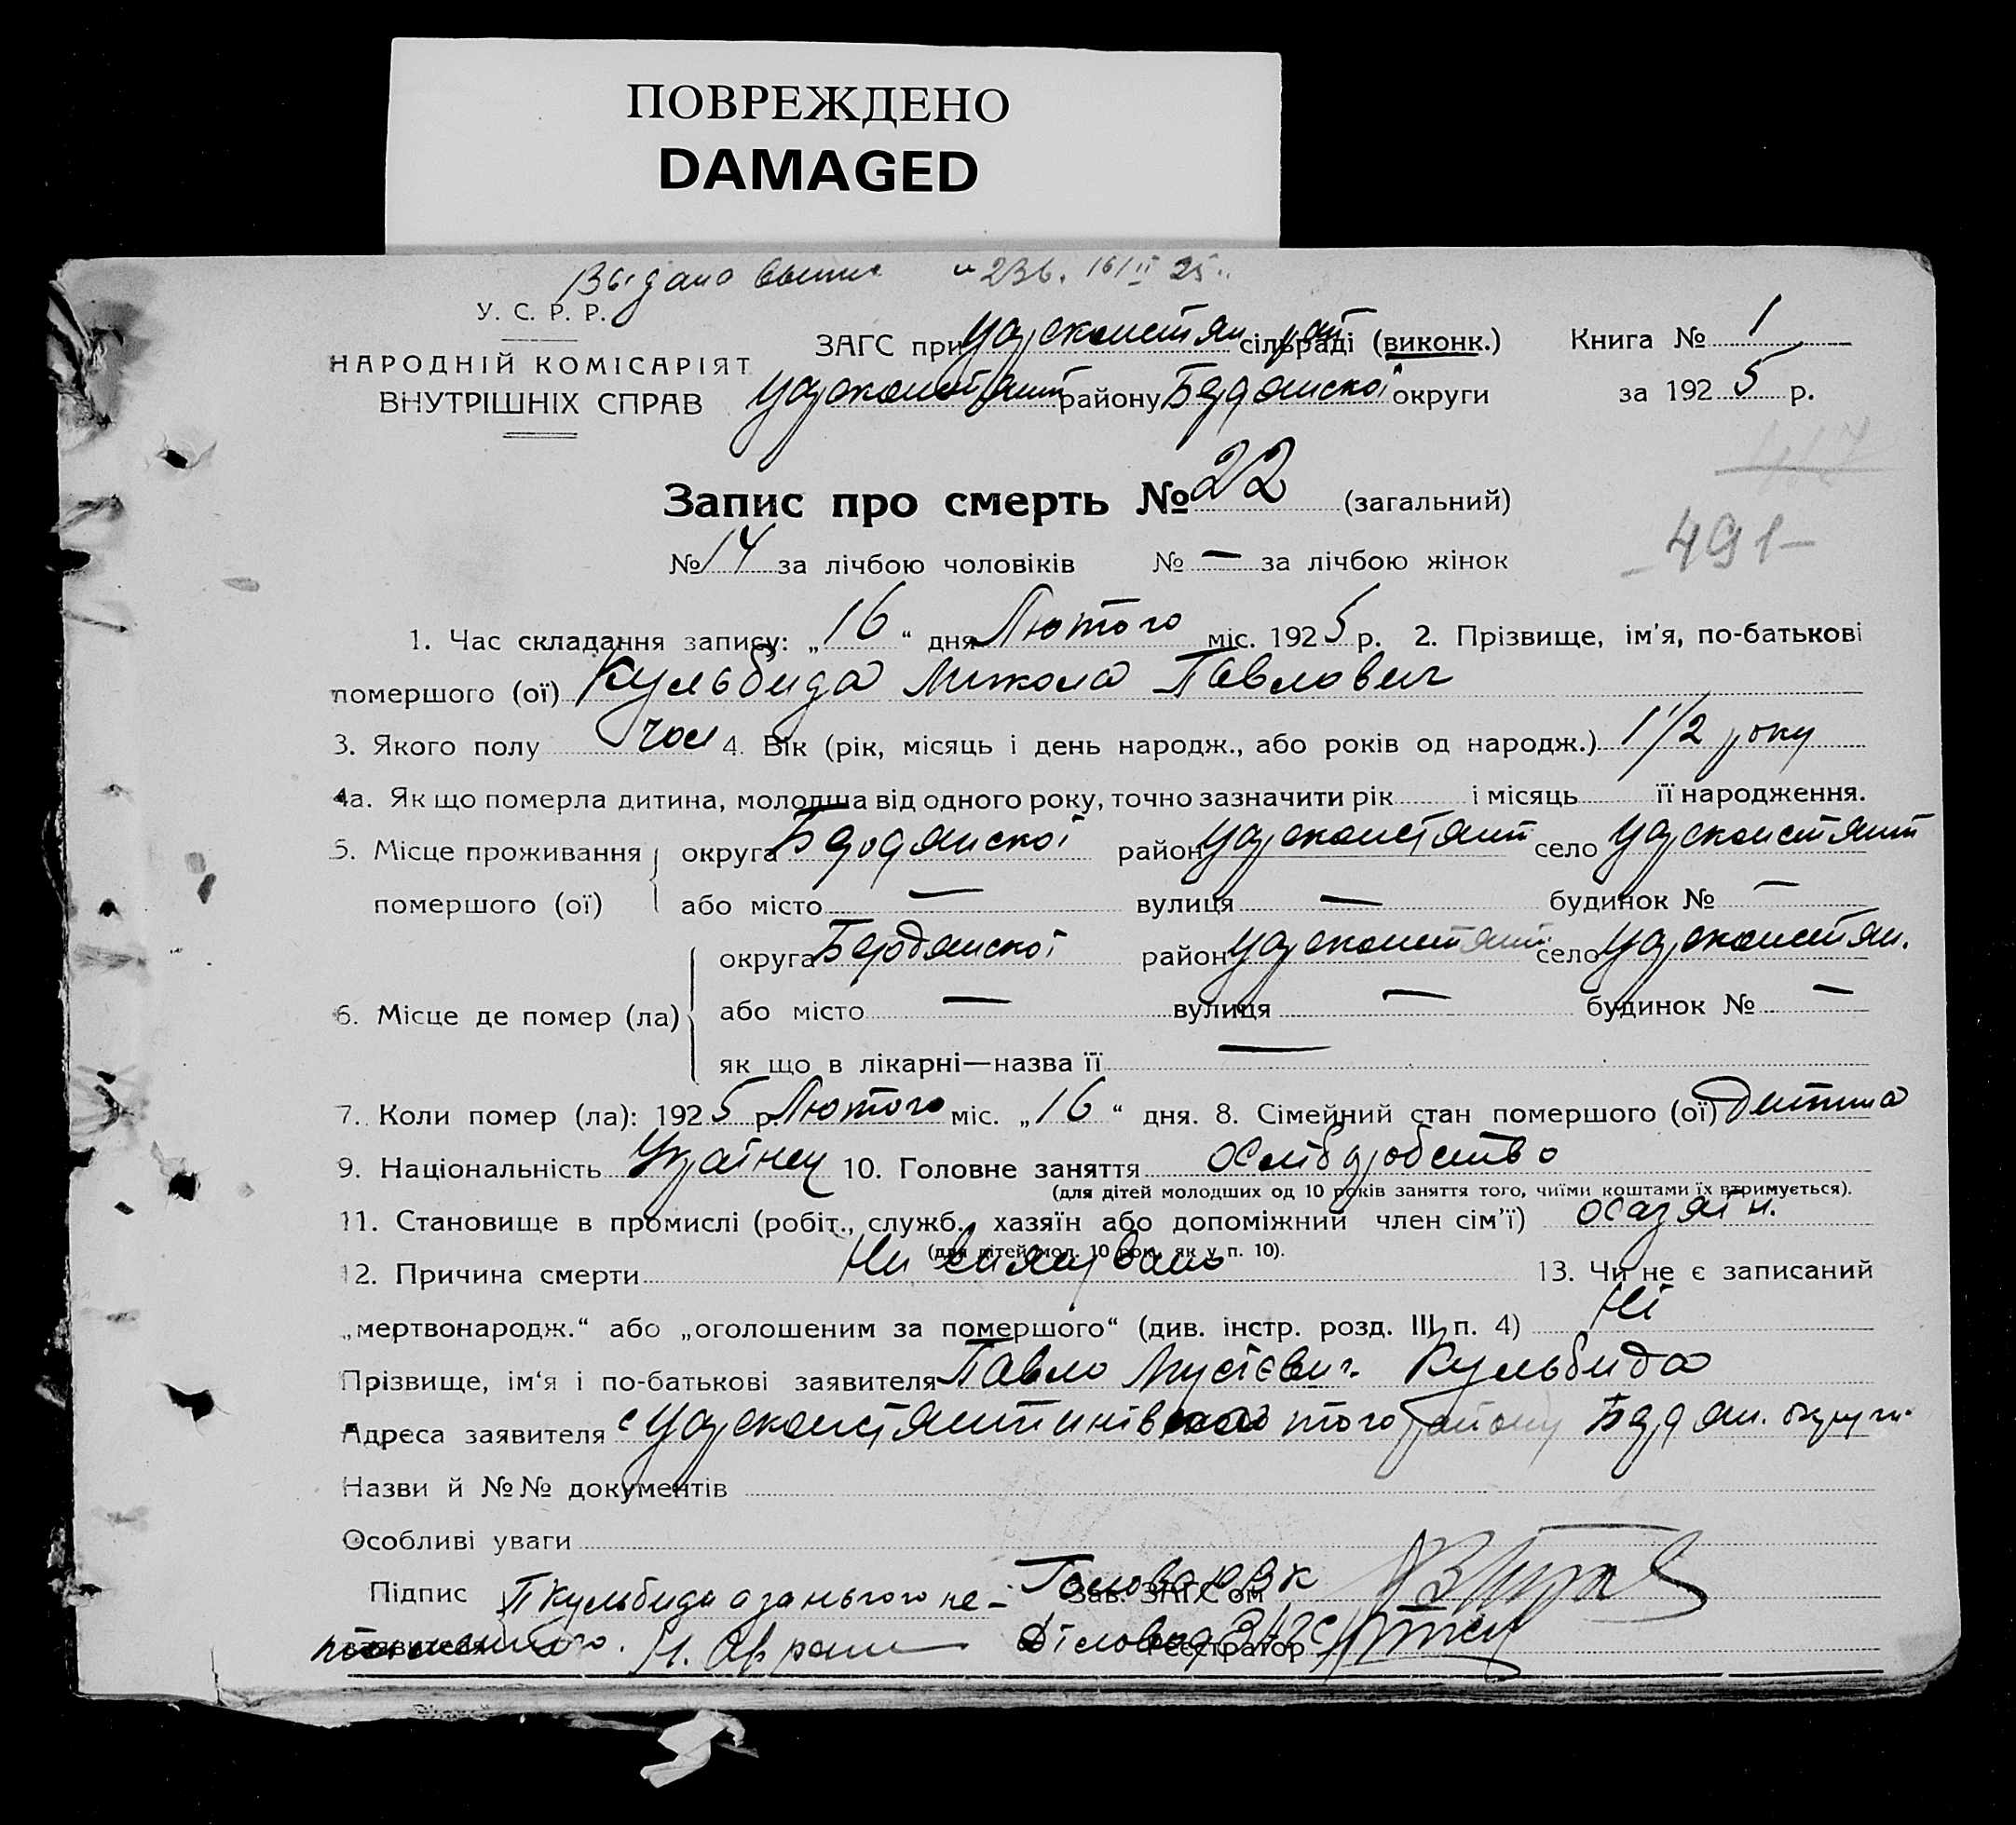 ПОВРЕЖДЕНО
DAMAGED
Видано 16/II 25
У. С. Р. Р.
НАРОДНІЙ КОМІСАРІЯТ
ВНУТРІШНІХ СПРАВ
ЗАГС при Цареконстян рай сільраді (виконк.)
Цареконстянт району Бердянскоі округи
Книга № 1
за 1925 р.
Запис про смерть № 22 (загальний)
№ 14 за лічбою чоловіків № — за лічбою жінок
491
1. Час складання запису: „16“ дня Лютого міс. 1925 р. 2. Прізвище, ім'я, по-батькові
помершого (ої) Кульбида Микола Павлович
3. Якого полу чол 4. Вік (рік, місяць і день народж., або років од народж.) 1 1/2 року
4а. Як що померла дитина, молодша від одного року, точно зазначити рік і місяць її народження.
5. Місце проживання помершого (ої) округа Бердянскоі район Цареконстянт село Цареконстянт
або місто — вулиця — будинок № —
6. Місце де помер (ла) округа Бердянскоі район Цареконстянт село Цареконстян.
або місто — вулиця — будинок № —
як що в лікарні—назва її —
7. Коли помер (ла): 1925 р. Лютого міс. „16“ дня. 8. Сімейний стан помершого (ої) Дитина
9. Національність Українец 10. Головне заняття Хліборобство
(для дітей молодших од 10 років заняття того, чиїми коштами їх втримується).
11. Становище в промислі (робіт., служб., хазяїн або допоміжний член сім'ї) Хазяїн.
(для дітей мол. 10 рок. як у п. 10).
12. Причина смерти Ни виявлено 13. Чи не є записаний
„мертвонародж.“ або „оголошеним за помершого“ (див. інстр. розд. III п. 4) Ні
Прізвище, ім'я і по-батькові заявителя Павло Мусієвич Кульбида
Адреса заявителя с Цареконстянтинівка того району Бердян. округи
Назви й №№ документів
Особливі уваги
Підпис заявителя П Кульбида а за нього не-
Зав. ЗАГС'ом
Реєстратор